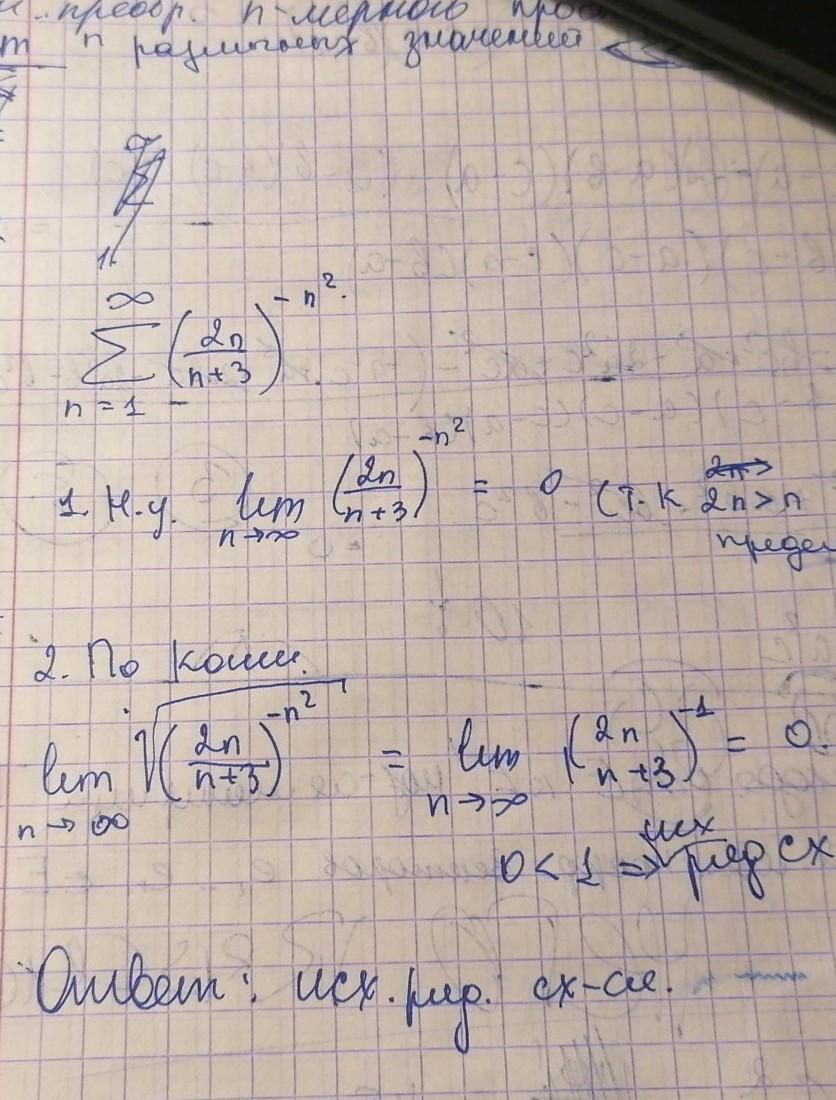 преобр. n-мерного
n различных значений
∞
∑ (2n/(n+3))^(-n²).
n = 1
1. Н.у. lim (2n/(n+3))^(-n²) = 0 (т.к 2n>n
n→∞
2. По Коши.
lim √((2n/(n+3))^(-n²)) = lim (2n/(n+3))^(-1) = 0.
n→∞ n→∞
0<1 => исх ряд сх
Ответ: исх. ряд. сх-ся.